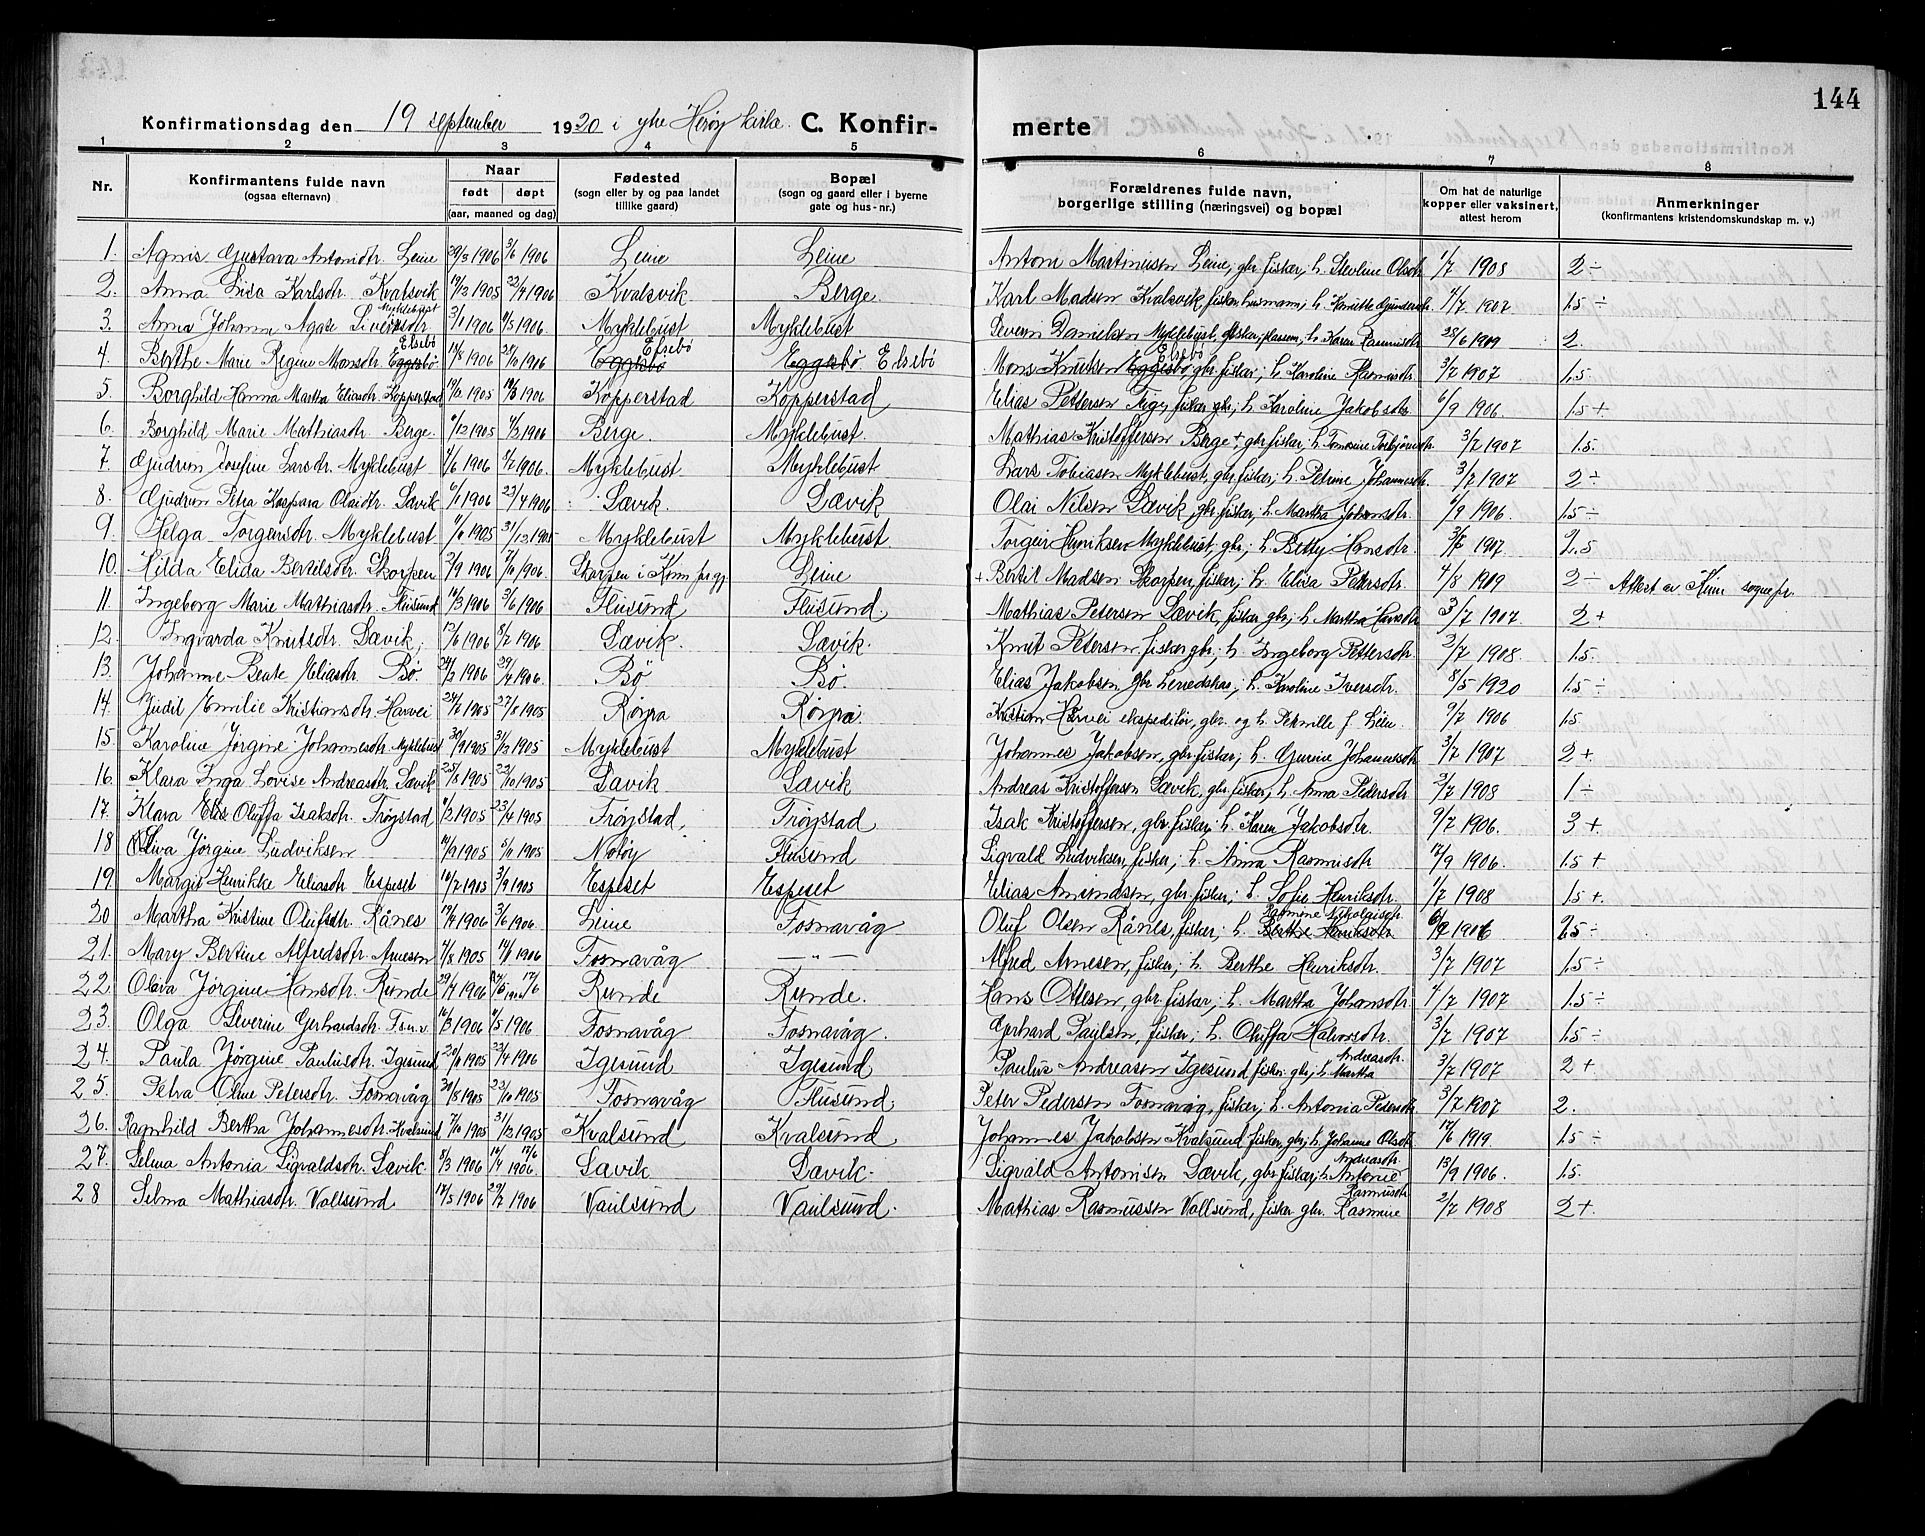 144
Konfirmationsdag den 19 september 1920 i ytre Herøy kirke. C. Konfirmerte
1 2 3 4 5 6 7 8
Nr. Konfirmantens fulde navn (ogsaa efternavn) Naar født døpt (aar, maaned og dag) Fødested (sogn eller by og paa landet tillike gaard) Bopæl (sogn og gaard eller i byerne gate og hus-nr.) Forældrenes fulde navn, borgerlige stilling (næringsvei) og bopæl Om hat de naturlige kopper eller vaksinert, attest herom Anmerkninger (konfirmantens kristendomskundskap m. v.)
1. Agnes Gustava Antonidtr. Leine 29/3 1906 3/6 1906 Leine Leine Antoni Martinusen Leine, gbr. fisker, h. Stevline Olsdtr. 1/7 1908 2 ÷
2. Anna Lisa Karlsdtr. Kvalsvik 19/12 1905 22/4 1906 Kvalsvik Berge Karl Madsen Kvalsvik, fisker, husmann, h. Knutte Gundersdtr. 4/7 1907 1.5 ÷
3. Anna Johanne Agate Siverinsdtr Myklebust 3/1 1906 4/5 1906. Myklebust Myklebust Severin Danielsen Myklebust, fisker, plassm, h. Karen Rasmusdtr 25/6 1909 2.
4. Berthe Marie Regine Monsdtr. Eggesbø Elsebø 14/8 1906 28/10 1906 Eggesbø Elsebø Eggesbø Elsebø Mons Knutsen Eggesbø Elsebø, gbr. fisker, h. Karoline Rasmusdtr. 3/7 1907 1.5
5. Borghild Hanna Martha Eliasdtr. Kopperstad 19/12 1905 18/3 1906 Kopperstad Kopperstad Elias Pettersen Teige, fisker gbr., h. Karoline Jakobsdtr. 6/9 1906. 1.5 +
6. Borghild Marie Mathiasdtr. Berge. 6/12 1905 4/3 1906 Berge. Myklebust. Mathias Kristoffersen Berge +, gbr. fisker, h. Tomasine Torbjørnsdtr. 3/7 1907 1.5.
7. Gudrun Josefine Larsdtr. Myklebust 7/6 1906 5/7 1906. Myklebust Myklebust Lars Tobiasen Myklebust, gbr. fisker, h. Petrine Johannesdtr. 3/7 1907 2 ÷
8. Gudrun Petra Kaspara Olaidtr. Sævik 6/1 1906 23/4 1906 Sævik. Sævik Olai Nilsen Sævik, gbr. fisker, h. Martha Johansdtr. 6/9 1906. 1.5 ÷
9. Helga Torgeirsdtr. Myklebust 9/10 1905 31/12 1905 Myklebust Myklebust. Torgeir Henriksen Myklebust, gbr., h. Betty Hansdtr. 3/7 1907. 2.5
10. Hilda Elida Bertilsdtr. Skorpen 2/9 1906 7/10 1906 Skorpen i Kinn prgj. Leine + Bertil Madsen Skorpen, fisker, h. Elisa Petersdtr. 4/8 1909 2 ÷ Attest av Kinn sognepr.
11. Ingeborg Marie Mathiasdtr. Flusund 14/3 1906 3/6 1906 Flusund Flusund Mathias Petersen Sævik, fisker gbr., h. Martha Hansdtr 3/7 1907. 2 +
12. Ingvarda Knutsdtr. Sævik; 13/6 1906 8/7 1906 Sævik. Sævik. Knut Petersen, fisker gbr., h. Ingeborg Pettersdtr. 3/7 1908. 1.5.
13. Johanne Beate Eliasdtr. Bø 24/2 1906 29/4 1906. Bø Bø. Elias Jakobsen, gbr. herredskas., h. Karoline Iversdtr. 8/5 1920 1.5 ÷
14. Judit Emilie Kristiansdtr. Harvei 24/7 1905 27/8 1905 Røyra Røyra Kristian Harvei ekspeditør, gbr. og h. Peknille f. Lien. 9/7 1906 1.5
15. Karoline Jørgine Johannesdtr Myklebust 30/9 1905 31/12 1905 Myklebust Myklebust Johannes Jakobsen, gbr. fisker, h. Gurine Johannesdtr. 3/7 1907 2 +
16. Klara Inga Lovise Andreasdtr. Sævik 25/8 1905 22/10 1905 Sævik Sævik Andreas Kristoffersen Sævik, gbr. fisker, h. Anna Pedersdtr. 3/7 1908 1 ÷
17. Klara Else Oluffa Isaksdtr. Frøystad 9/2 1905 23/4 1905 Frøystad. Frøystad Isak Kristoffersen, gbr. fisker, h. Karen Jakobsdtr. 9/7 1906. 3 +
18 Jørgine Ludviksen 14/9 1905 5/11 1905 Notøy Flusund Sigvald Ludviksen, fisker, h. Anna Rasmusdtr 12/9 1906. 1.5 +
19. Margit Henrikke Eliasdtr Espeset 16/7 1905 3/9 1905 Espeset Espeset Elias Amundsen, gbr. fisker, h. Sofie Henriksdtr. 1/7 1908 1.5 +.
20 Martha Kristine Olufsdtr. Rånes 19/4 1906 3/6 1906. Leine Fosnavåg Oluf Olsen Rånes, fisker, h. Berthe Henriksdtr Rasmine Nikolaisdtr. 6/9 1906 2.5 ÷
21. Mary Bertine Alfredsdtr. Arnesen 4/8 1905 14/1 1906 Fosnavåg — „ — Alfred Arnesen, fisker, h. Berthe Henriksdtr. 3/7 1907 1.5 ÷
22. Oliva Jørgine Hansdtr. Runde 29/4 1906 17/6 Runde Runde. Hans Ottesen, gbr. fisker, h. Martha Johansdtr. 4/7 1907 1.5 ÷
23. Olga Severine Gerhardsdtr. Fsn.v. 16/3 1906 6/5 1906 Fosnavåg Fosnavåg. Gerhard Paulsen, fisker, h. Oluffa Halvorsdtr. 3/7 1907 1.5 ÷
24. Paula Jørgine Paulusdtr. Igesund 20/11 1905 23/4 1906 Igesund Igesund Paulus Andreasen Igesund fisker gbr., h. Martha Andreasdtr. 3/7 1907 2 +
25. Petra Oline Petersdtr. Fosnavåg 30/8 1905 23/10 1905 Fosnavåg Flusund. Peter Pedersen Fosnavåg, fisker, h. Antonia Pedersdtr 3/7 1907 2.
26. Ragnhild Bertha Johannesdtr. Kvalsund 7/10 1905 31/12 1905 Kvalsund Kvalsund Johannes Jakobsen Kvalsund fisker gbr., h. Johanne Olsdtr 17/6 1919. 1.5 ÷
27. Selma Antonia Sigvaldsdtr. Sævik. 8/3 1906 17/6 1906 Sævik Sævik. Sigvald Antonisen Sævik, gbr. fisker, h. Antonie Andreasdtr. 13/9 1906. 1.5.
28 Selma Mathiasdtr. Vollsund 17/5 1906 29/7 1906 Vaulsund Vaulsund. Mathias Rasmussen Vollsund, fisker gbr. Rasmine Rasmusdtr 2/7 1908 2 +.